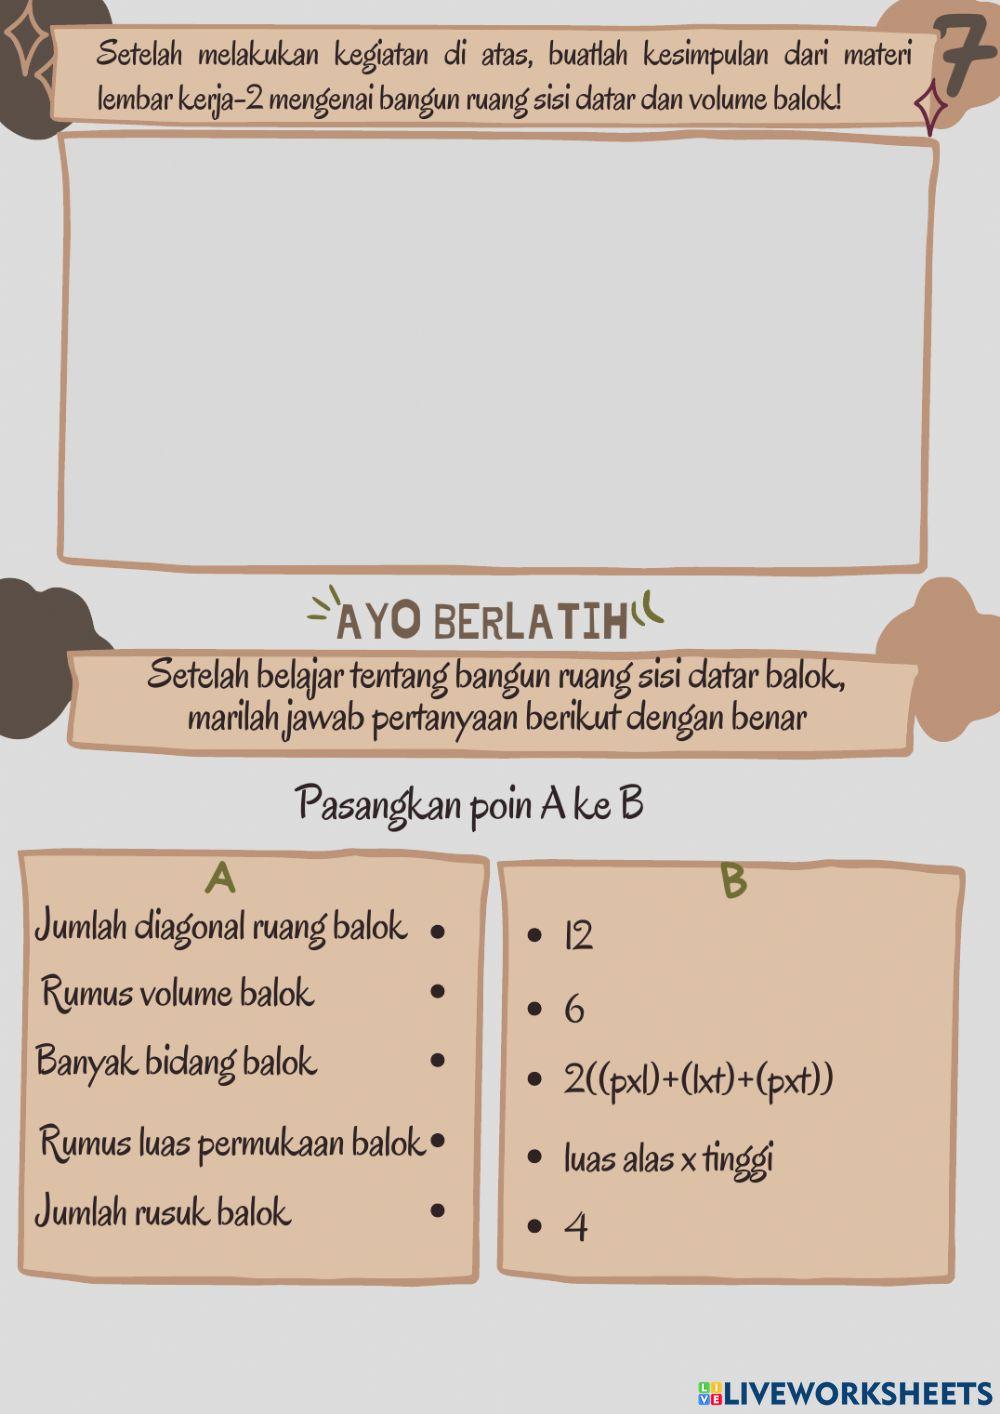 Setelah melakukan kegiatan di atas, buatlah kesimpulan dari materi
lembar kerja-2 mengenai bangun ruang sisi datar dan volume balok!
7
AYO BERLATIH
Setelah belajar tentang bangun ruang sisi datar balok,
marilah jawab pertanyaan berikut dengan benar
Pasangkan poin A ke B
A
Jumlah diagonal ruang balok •
Rumus volume balok •
Banyak bidang balok •
Rumus luas permukaan balok •
Jumlah rusuk balok •
B
• 12
• 6
• 2((pxl)+(lxt)+(pxt))
• luas alas x tinggi
• 4
LIVE LIVEWORKSHEETS